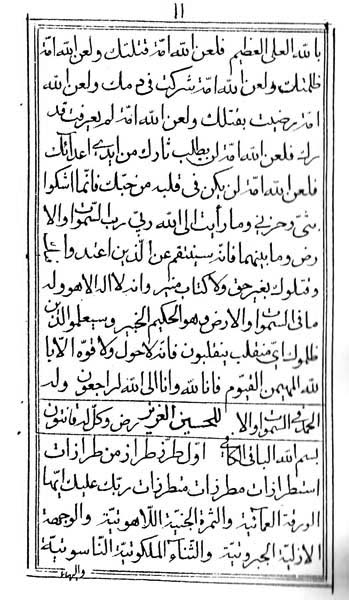 ١١
بالله العلی العظیم فلعن الله امة قتلتك ولعن الله امة
ظلمتك ولعن الله امة شرکت فی دمك ولعن الله
امة رضیت بقتلك ولعن الله امة لم یعرفت قد
رك فلعن الله امة لن یطلب ثارك من ایدی اعدائك
فلعن الله امة لن یکن فی قلبه من حبك فانما اشکوا
بثی وحزنی وما رأیت الی الله ربی رب السموات والا
رض وما بینهما فانه سینتقم عن الذین اعتدوا
وقتلوك بغیر حق ولا کتاب منیر وانه لا اله الا هو وله
ما فی السموات والارض وهو الحکیم الخبیر وسیعلموا الذین
ظلموك ای منقلب ینقلبون فانه لا حول ولا قوة الا با
لله المهیمن القیوم فانا لله وانا الی الله لراجعون وله
الحمد فی السموات والا للحسین العزیز رض وکل له قانتون
بسم الله الباقی الکافی اول طرز طراز من طرازات
استطرازات مطرزات متطرزات ربك علیك ایتها
الورقة العمائیة والثمرة الجنیة اللاهوتیة والوجهة
الازلیة الجبروتیة والثناء الملکوتیة الناسوتیة
والبهاء